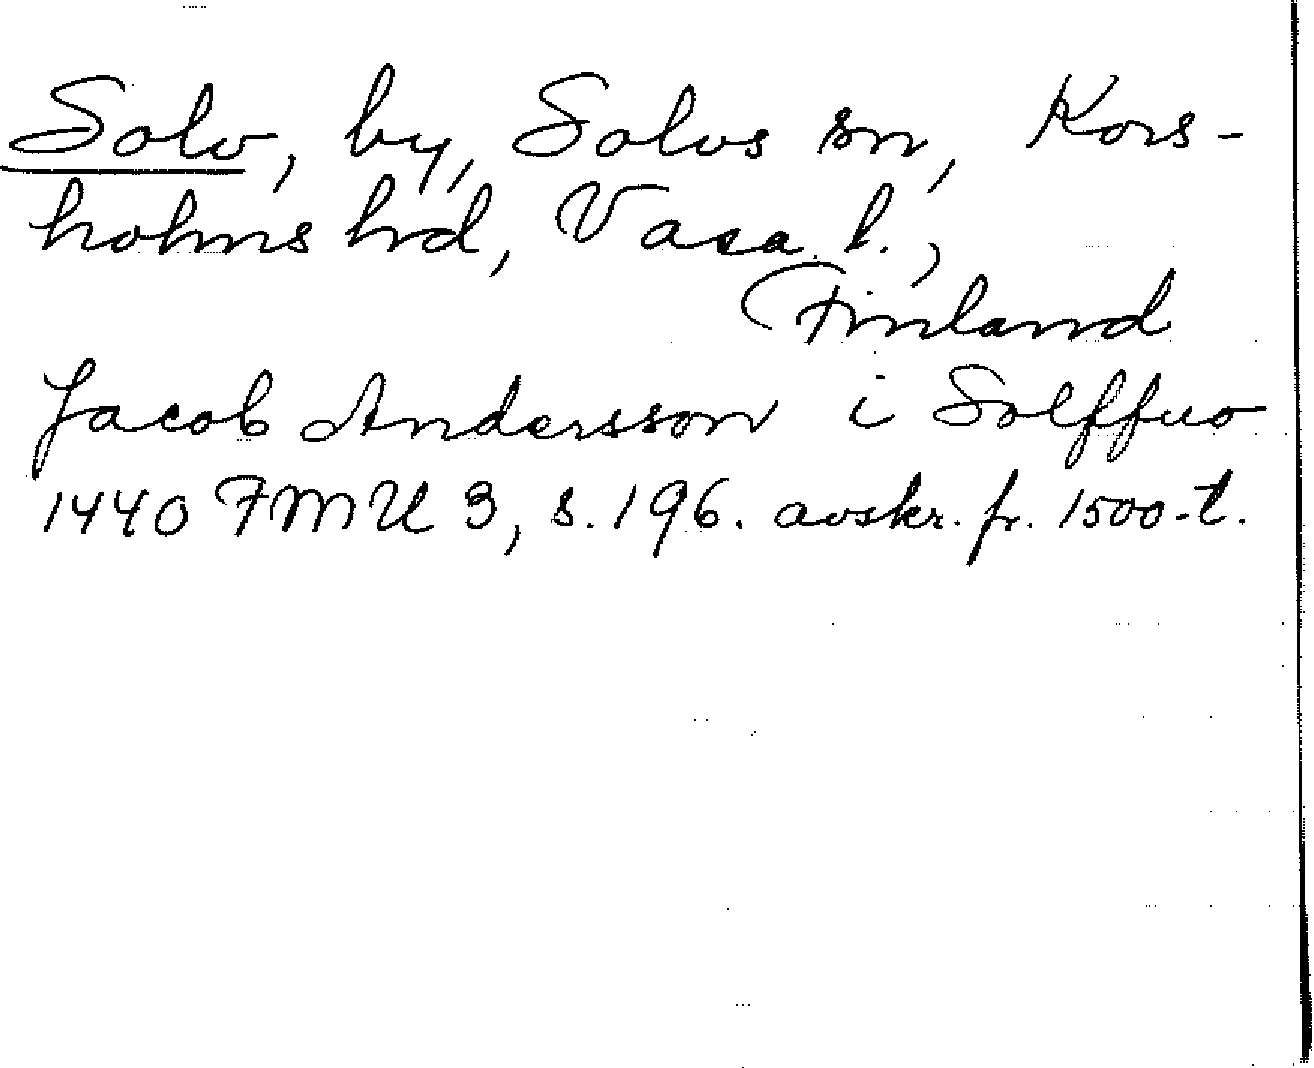 Solv, by, Solvs sn, Kors-
holms hrd, Vasa l.,
Finland
Jacob Andersson i Solffuo
1440 FMU 3, s. 196. avskr. fr. 1500-t.